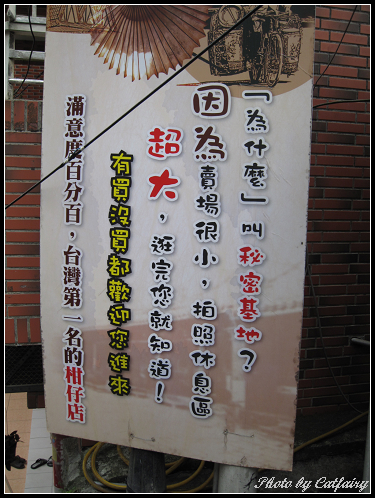 「為什麼」叫秘密基地?
因為賣場很小，拍照休息區
超大，逛完您就知道!
有買沒買都歡迎您進來
滿意度百分百，台灣第一名的柑仔店
Photo by Catfairy